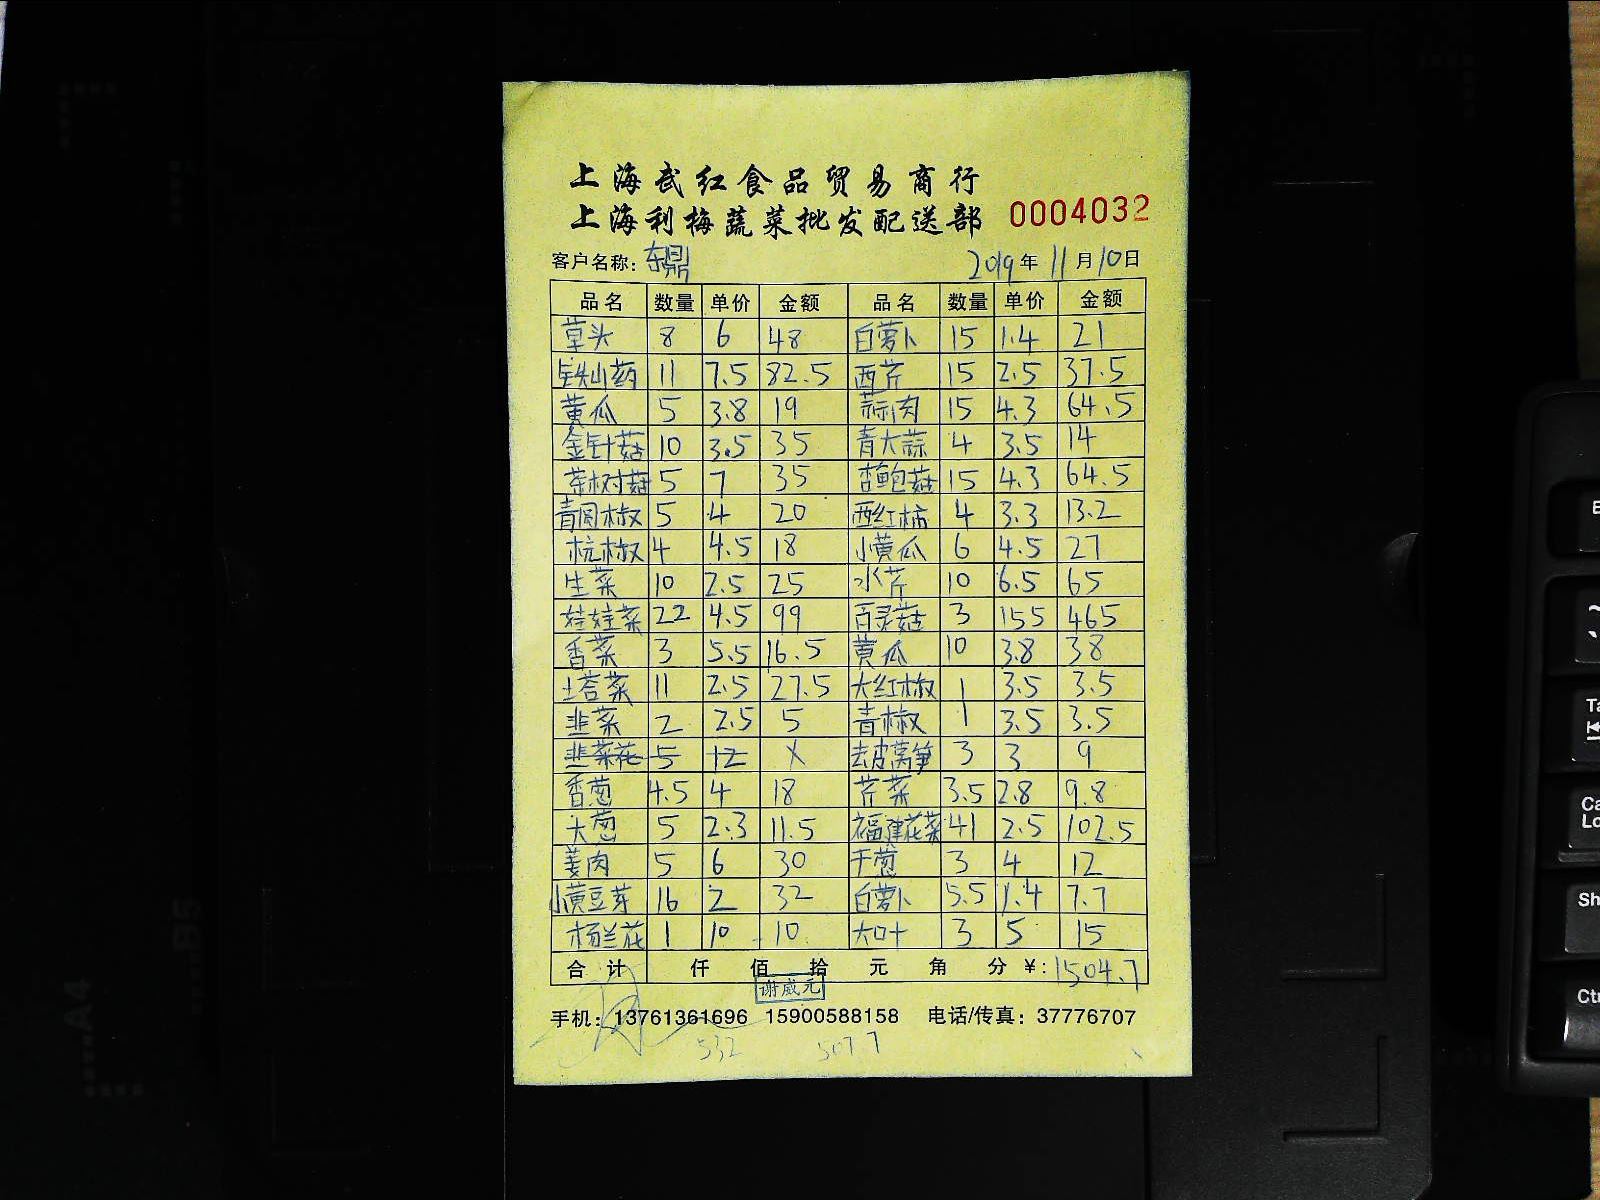 上海武红食品贸易商行
上海利梅蔬菜批发配送部 0004032
客户名称: 东鼎 2019年 11月10日
品名 数量 单价 金额 品名 数量 单价 金额
草头 8 6 48 白萝卜 15 1.4 21
铁山药 11 7.5 82.5 西芹 15 2.5 37.5
黄瓜 5 3.8 19 蒜肉 15 4.3 64.5
金针菇 10 3.5 35 青大蒜 4 3.5 14
茶树菇 5 7 35 杏鲍菇 15 4.3 64.5
青圆椒 5 4 20 西红柿 4 3.3 13.2
杭椒 4 4.5 18 小黄瓜 6 4.5 27
生菜 10 2.5 25 水芹 10 6.5 65
娃娃菜 22 4.5 99 百灵菇 3 155 465
香菜 3 5.5 16.5 黄瓜 10 3.8 38
塔菜 11 2.5 27.5 大红椒 1 3.5 3.5
韭菜 2 2.5 5 青椒 1 3.5 3.5
韭菜花 5 12 X 去皮莴笋 3 3 9
香葱 4.5 4 18 芹菜 3.5 2.8 9.8
大葱 5 2.3 11.5 福建花菜 41 2.5 102.5
姜肉 5 6 30 干葱 3 4 12
小黄豆芽 16 2 32 白萝卜 5.5 1.4 7.7
杨兰花 1 10 10 大叶 3 5 15
合计 仟 佰 拾 元 角 分 ¥: 1504.7
谢威元
手机: 13761361696 15900588158 电话/传真: 37776707
532 5077
B5
A4